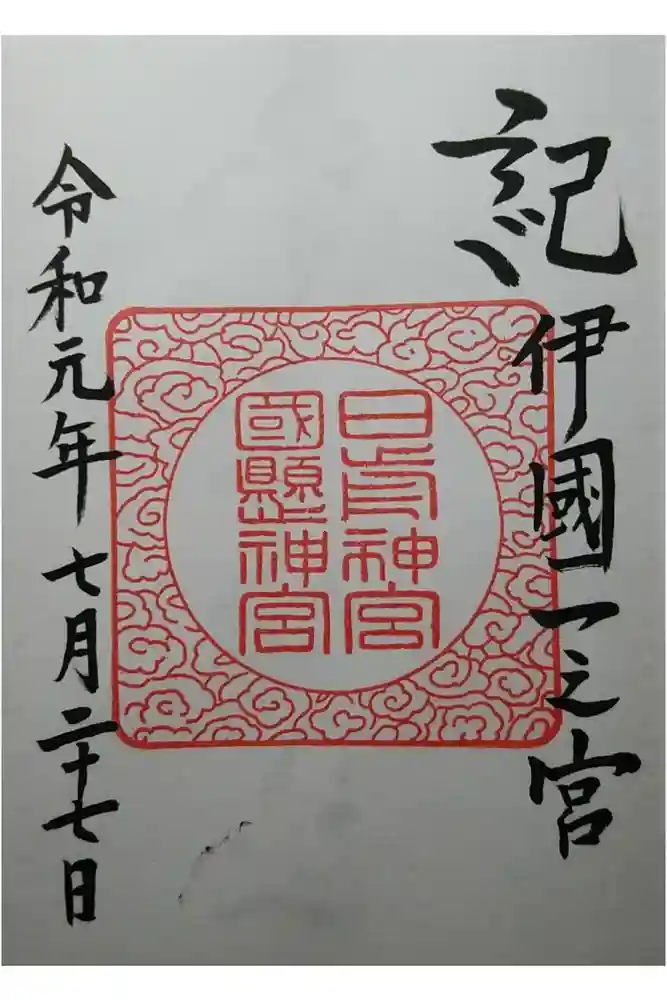 紀伊國一之宮
日前神宮
國懸神宮
令和元年七月二十七日